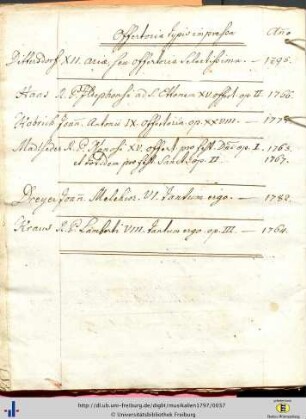 Offertoria typis impressa Año
Dittersdorf XII. Aria, seu Offertoria Selectissima. — 1795.
Haas R. P. Ildephonsi ad S. Ettonem XV offert. op II. 1766.
Kobrich Joan̄. Antonii IX. Offertoria. op. XXVIII. — 177
Madlseder R. P. Nonosi XV. offert. pro fest. Dn̄i op. I. 1765.
et totidem pro fest. Sanct. op. II. 1767.
Dreyer Joan̄. Melchior. VI. Tantum ergo. — 1782.
Kraus R. P. Lamberti VIII. Tantum ergo op. III. — 1764.
http://dl.ub.uni-freiburg.de/diglit/musikalien1797/0037
© Universitätsbibliothek Freiburg